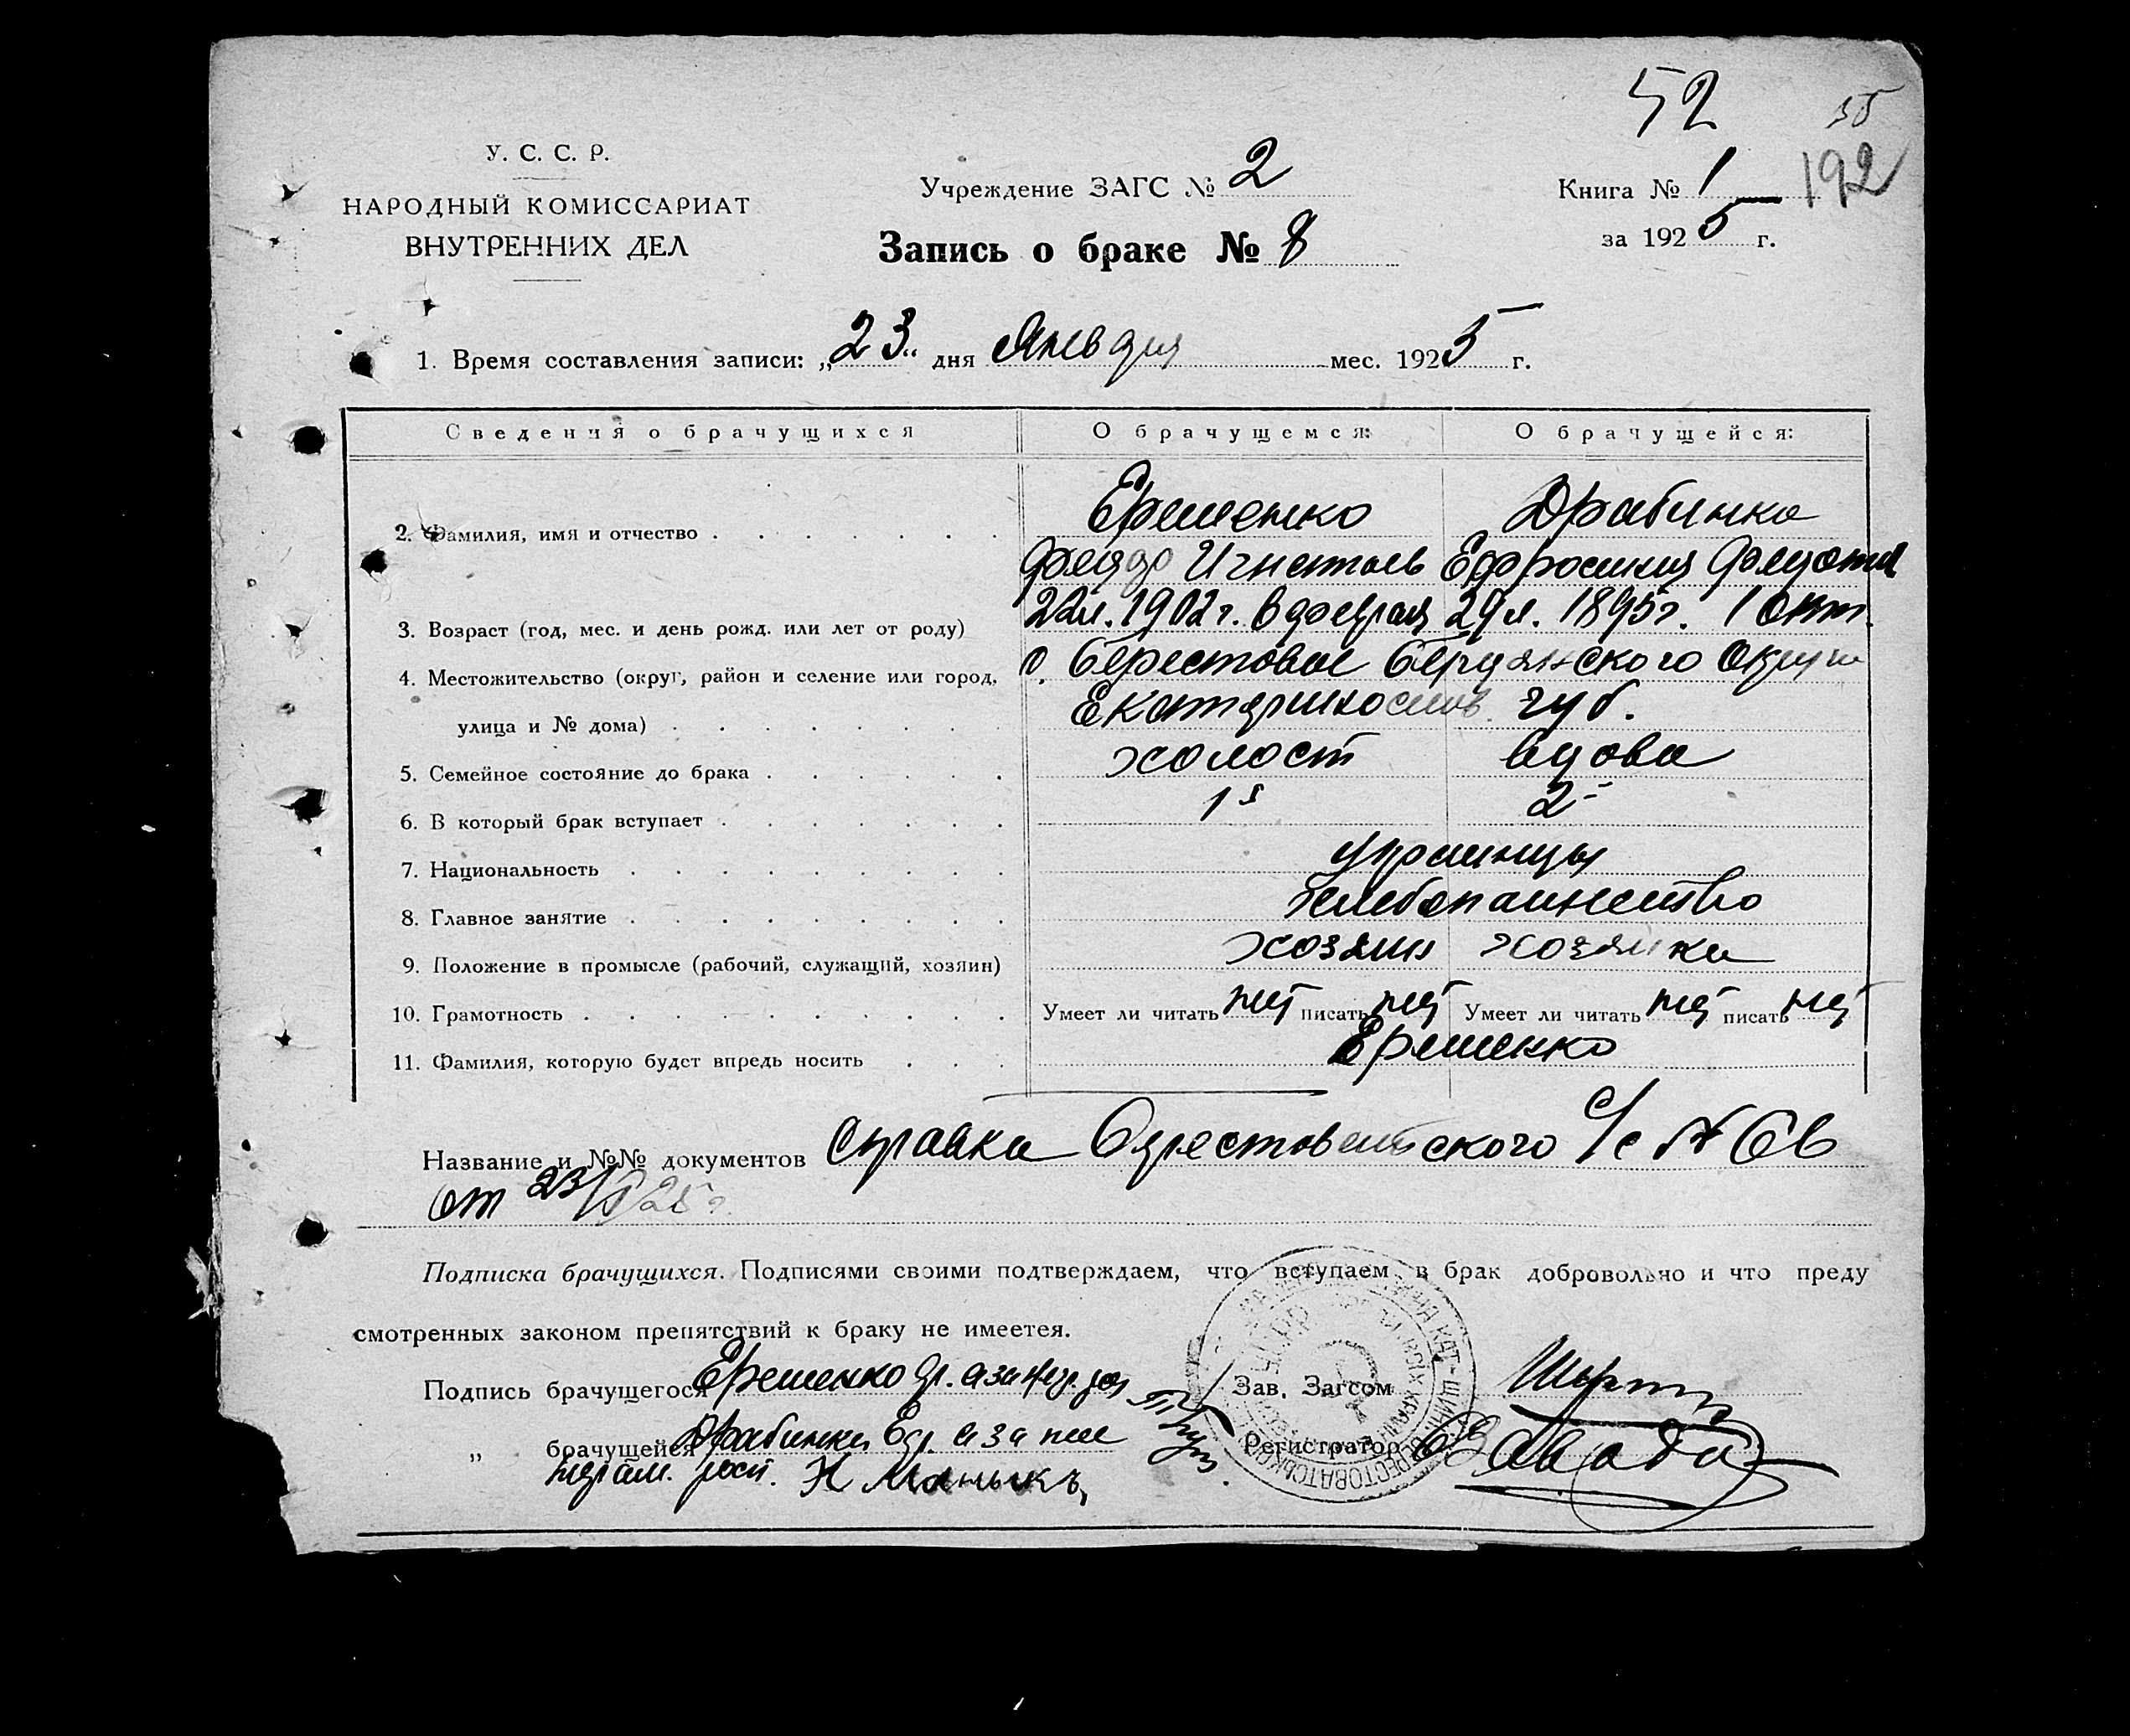 52
35
192
У. С. С. Р.
НАРОДНЫЙ КОМИССАРИАТ
ВНУТРЕННИХ ДЕЛ
Учреждение ЗАГС № 2
Книга № 1
Запись о браке № 8
за 1925 г.
1. Время составления записи: „23" дня Января мес. 1925 г.
Сведения о брачущихся О брачущемся: О брачущейся:
2. Фамилия, имя и отчество Ерешенко Драбинка
Феддр Игнатьев Ефросиния Федотов
3. Возраст (год, мес. и день рожд. или лет от роду) 22 л. 1902 г. 8 февраля 29 л. 1895 г. 1 окт.
4. Местожительство (округ, район и селение или город, с. Берестовое Бердянского округа
улица и № дома) Екатеринослов. губ.
5. Семейное состояние до брака холост вдова
6. В который брак вступает 1й 2й
7. Национальность украинцы
8. Главное занятие хлебопашество
9. Положение в промысле (рабочий, служащий, хозяин) хозяин хозяйка
10. Грамотность Умеет ли читать нет писать нет Умеет ли читать нет писать нет
11. Фамилия, которую будет впредь носить Ерешенко
Название и №№ документов Справка Берестоватского с/с № 66
от 23/I 25 г.
Подписка брачущихся. Подписями своими подтверждаем, что вступаем в брак добровольно и что преду
смотренных законом препятствий к браку не имеется.
Подпись брачущегося Ерешенко а за
Зав. Загсом
„ брачущейся Драбинка Еф. а за нее
Регистратор Завада
неграм. росп. Н